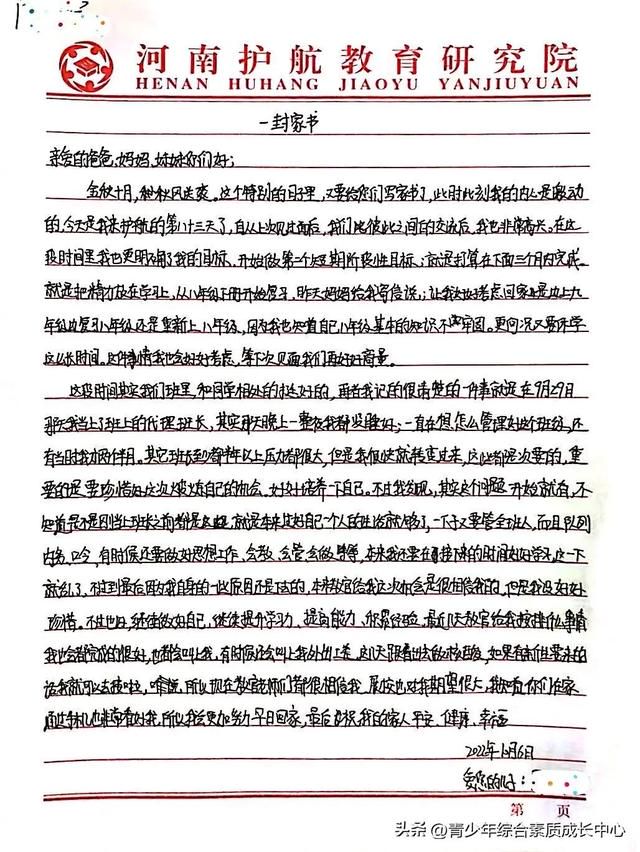 河南护航教育研究院
HENAN HUHANG JIAOYU YANJIUYUAN
一封家书
亲爱的爸爸、妈妈、妹妹你们好；
金秋十月，秋风送爽。这个特别的日子里，又要给你们写家书了，此时此刻我的内心是激动
的，今天是我来护航的第八十三天了，自从上次见过面后，我们彼此之间的交流后，我也非常高兴，在这
段时间里我也更明确了我的目标，开始做第一个短期阶段性目标；就是打算在下面三个月内完成。
就是把精力放在学习上，从八年级下册开始复习，昨天妈妈给我写信说；让我好好考虑回家是边上九
年级边复习八年级还是重新上八年级，因为我也知道自己八年级基本的知识不牢固。更何况又要休学
这么长时间。这件事情我也会好好考虑，等下次见面我们再好好商量。
这段时间其实我们班里，和同学相处的挺好的，再者我记的很清楚的一件事就是在9月29日
那天我当上了班上的代理班长，其实那天晚上一整夜我都没睡好；一直在想怎么管理好这个班级，还
有当时我才两个半月。其它班长都半年以上压力都很大，但是我很快就转变过来，这些都是次要的，重
要的是要珍惜好这次锻炼自己的机会，好好培养一下自己。不过我发现，其实这个问题一开始就有，不
知道是不是刚当上班长之前都是这样，就是本来过好自己一个人的生活就够了，一下子又要管全班人，而且队列
内务、口令，有时候还要做好思想工作、会教、会管、会做
就乱了，不过到最后因为我自身的一些原因还是下的，本来教官给我这次机会是很相信我的，但是我没好好
珍惜。不过也好，继续做好自己，继续提升学习力、提高能力、积累经验。最近几天教官给我安排什么事情
我也会都完成的很好，也都会叫我，有时候还会叫我外出
话我就可以去啦，所以现在教官老师们都很相信我，也对我期望很大，我知道你们在家
通过手机也非常看好我，所以我会更加努力早日回家，最后祝我的家人平安、健康、幸福
2022年10月6日
爱您的儿子：
第 页
头条@青少年综合素质成长中心